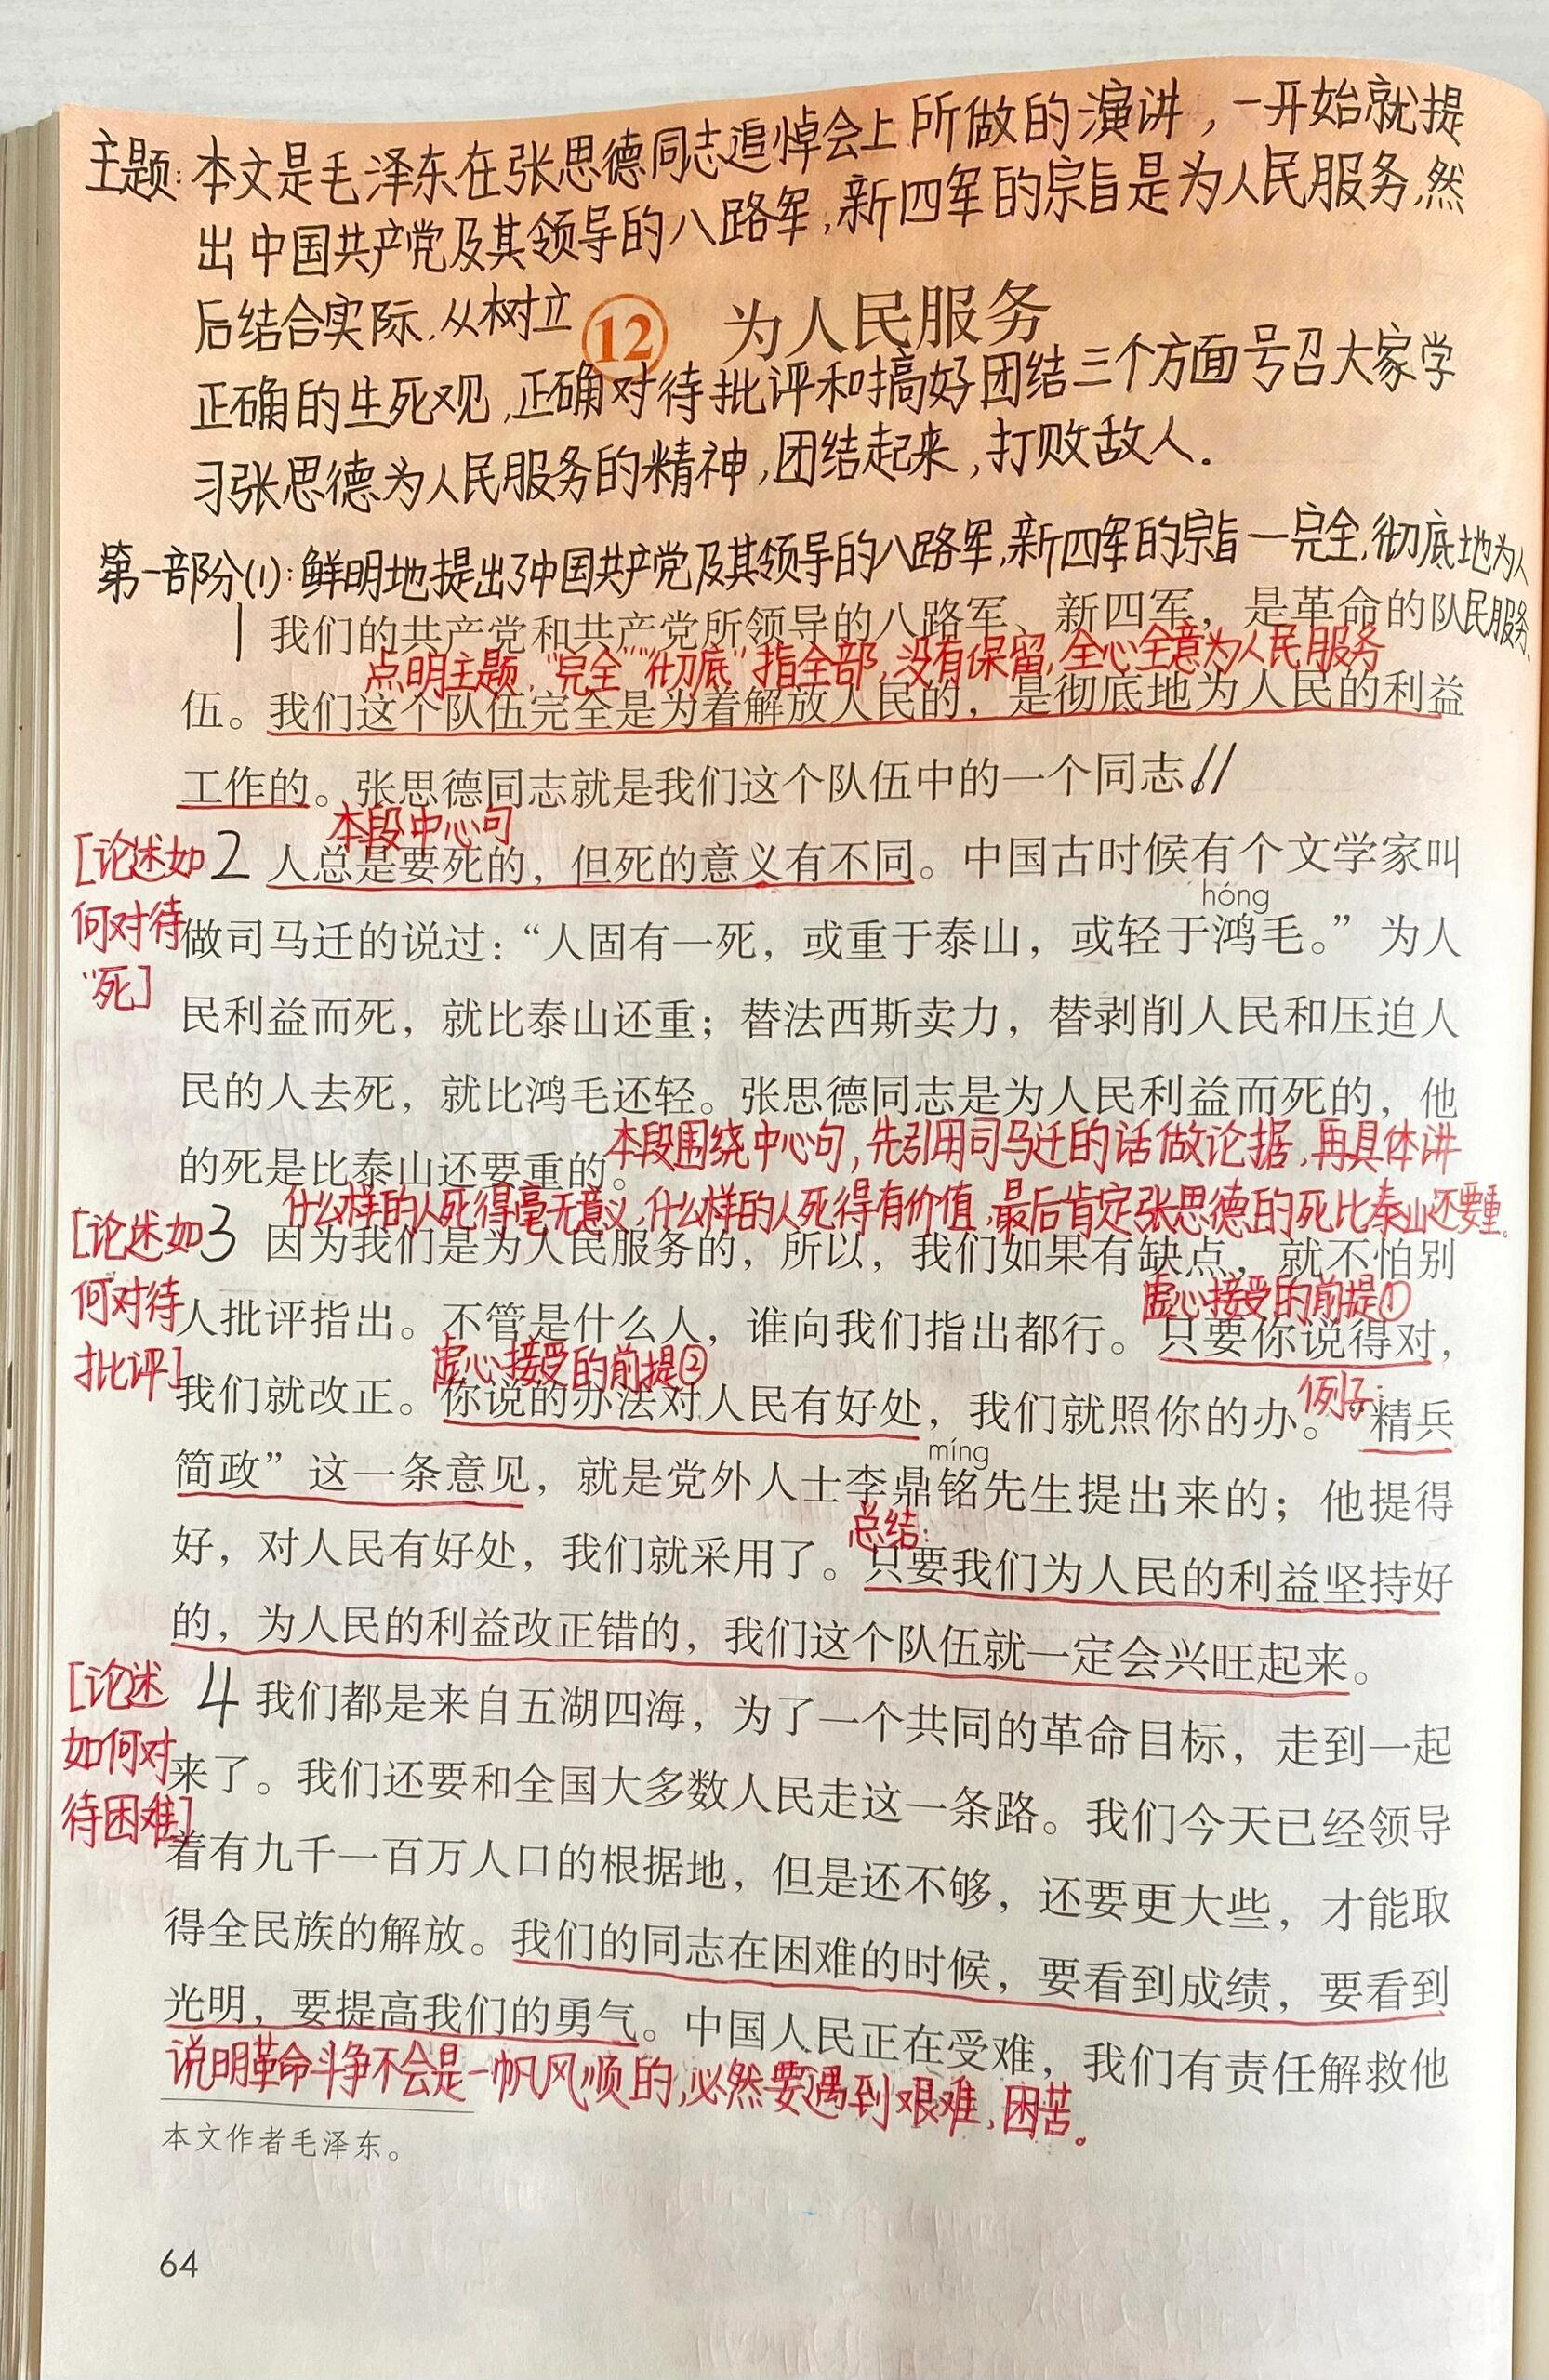 主题:本文是毛泽东在张思德同志追悼会上所做的演讲,一开始就提
出中国共产党及其领导的八路军,新四军的宗旨是为人民服务,然
后结合实际,从树立
12 为人民服务
正确的生死观,正确对待批评和搞好团结三个方面号召大家学
习张思德为人民服务的精神,团结起来,打败敌人.
第一部分(1):鲜明地提出了中国共产党及其领导的八路军,新四军的宗旨一完全,彻底地为人
民服务.
1 我们的共产党和共产党所领导的八路军、新四军,是革命的队
点明主题,"完全""彻底"指全部,没有保留,全心全意为人民服务
伍。我们这个队伍完全是为着解放人民的,是彻底地为人民的利益
工作的。张思德同志就是我们这个队伍中的一个同志。//
本段中心句
[论述如
何对待
"死]
2 人总是要死的,但死的意义有不同。中国古时候有个文学家叫
hóng
做司马迁的说过:“人固有一死,或重于泰山,或轻于鸿毛。”为人
民利益而死,就比泰山还重;替法西斯卖力,替剥削人民和压迫人
民的人去死,就比鸿毛还轻。张思德同志是为人民利益而死的,他
的死是比泰山还要重的。
本段围绕中心句,先引用司马迁的话做论据,再具体讲
什么样的人死得毫无意义,什么样的人死得有价值,最后肯定张思德的死比泰山还要重.
[论述如
何对待
批评]
3 因为我们是为人民服务的,所以,我们如果有缺点,就不怕别
虚心接受的前提①
人批评指出。不管是什么人,谁向我们指出都行。只要你说得对,
虚心接受的前提②
我们就改正。你说的办法对人民有好处,我们就照你的办。“精兵
例子:
míng
简政”这一条意见,就是党外人士李鼎铭先生提出来的;他提得
总结:
好,对人民有好处,我们就采用了。只要我们为人民的利益坚持好
的,为人民的利益改正错的,我们这个队伍就一定会兴旺起来。
[论述
如何对
待困难]
4 我们都是来自五湖四海,为了一个共同的革命目标,走到一起
来了。我们还要和全国大多数人民走这一条路。我们今天已经领导
着有九千一百万人口的根据地,但是还不够,还要更大些,才能取
得全民族的解放。我们的同志在困难的时候,要看到成绩,要看到
光明,要提高我们的勇气。中国人民正在受难,我们有责任解救他
说明革命斗争不会是一帆风顺的,必然要遇到艰难,困苦。
本文作者毛泽东。
64